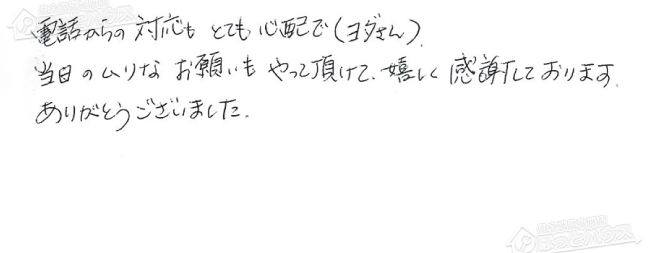 電話からの対応もとても心配で(ヨダさん)
当日のムリなお願いもやって頂けて、嬉しく感謝しております.
ありがとうございました.